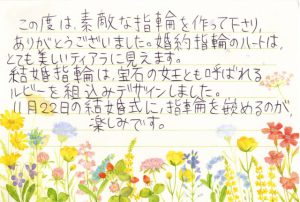 この度は、素敵な指輪を作って下さり、
ありがとうございました。婚約指輪のハートは、
とても美しいティアラに見えます。
結婚指輪は、宝石の女王とも呼ばれる
ルビーを組込みデザインしました。
11月22日の結婚式に、指輪を嵌めるのが、
楽しみです。